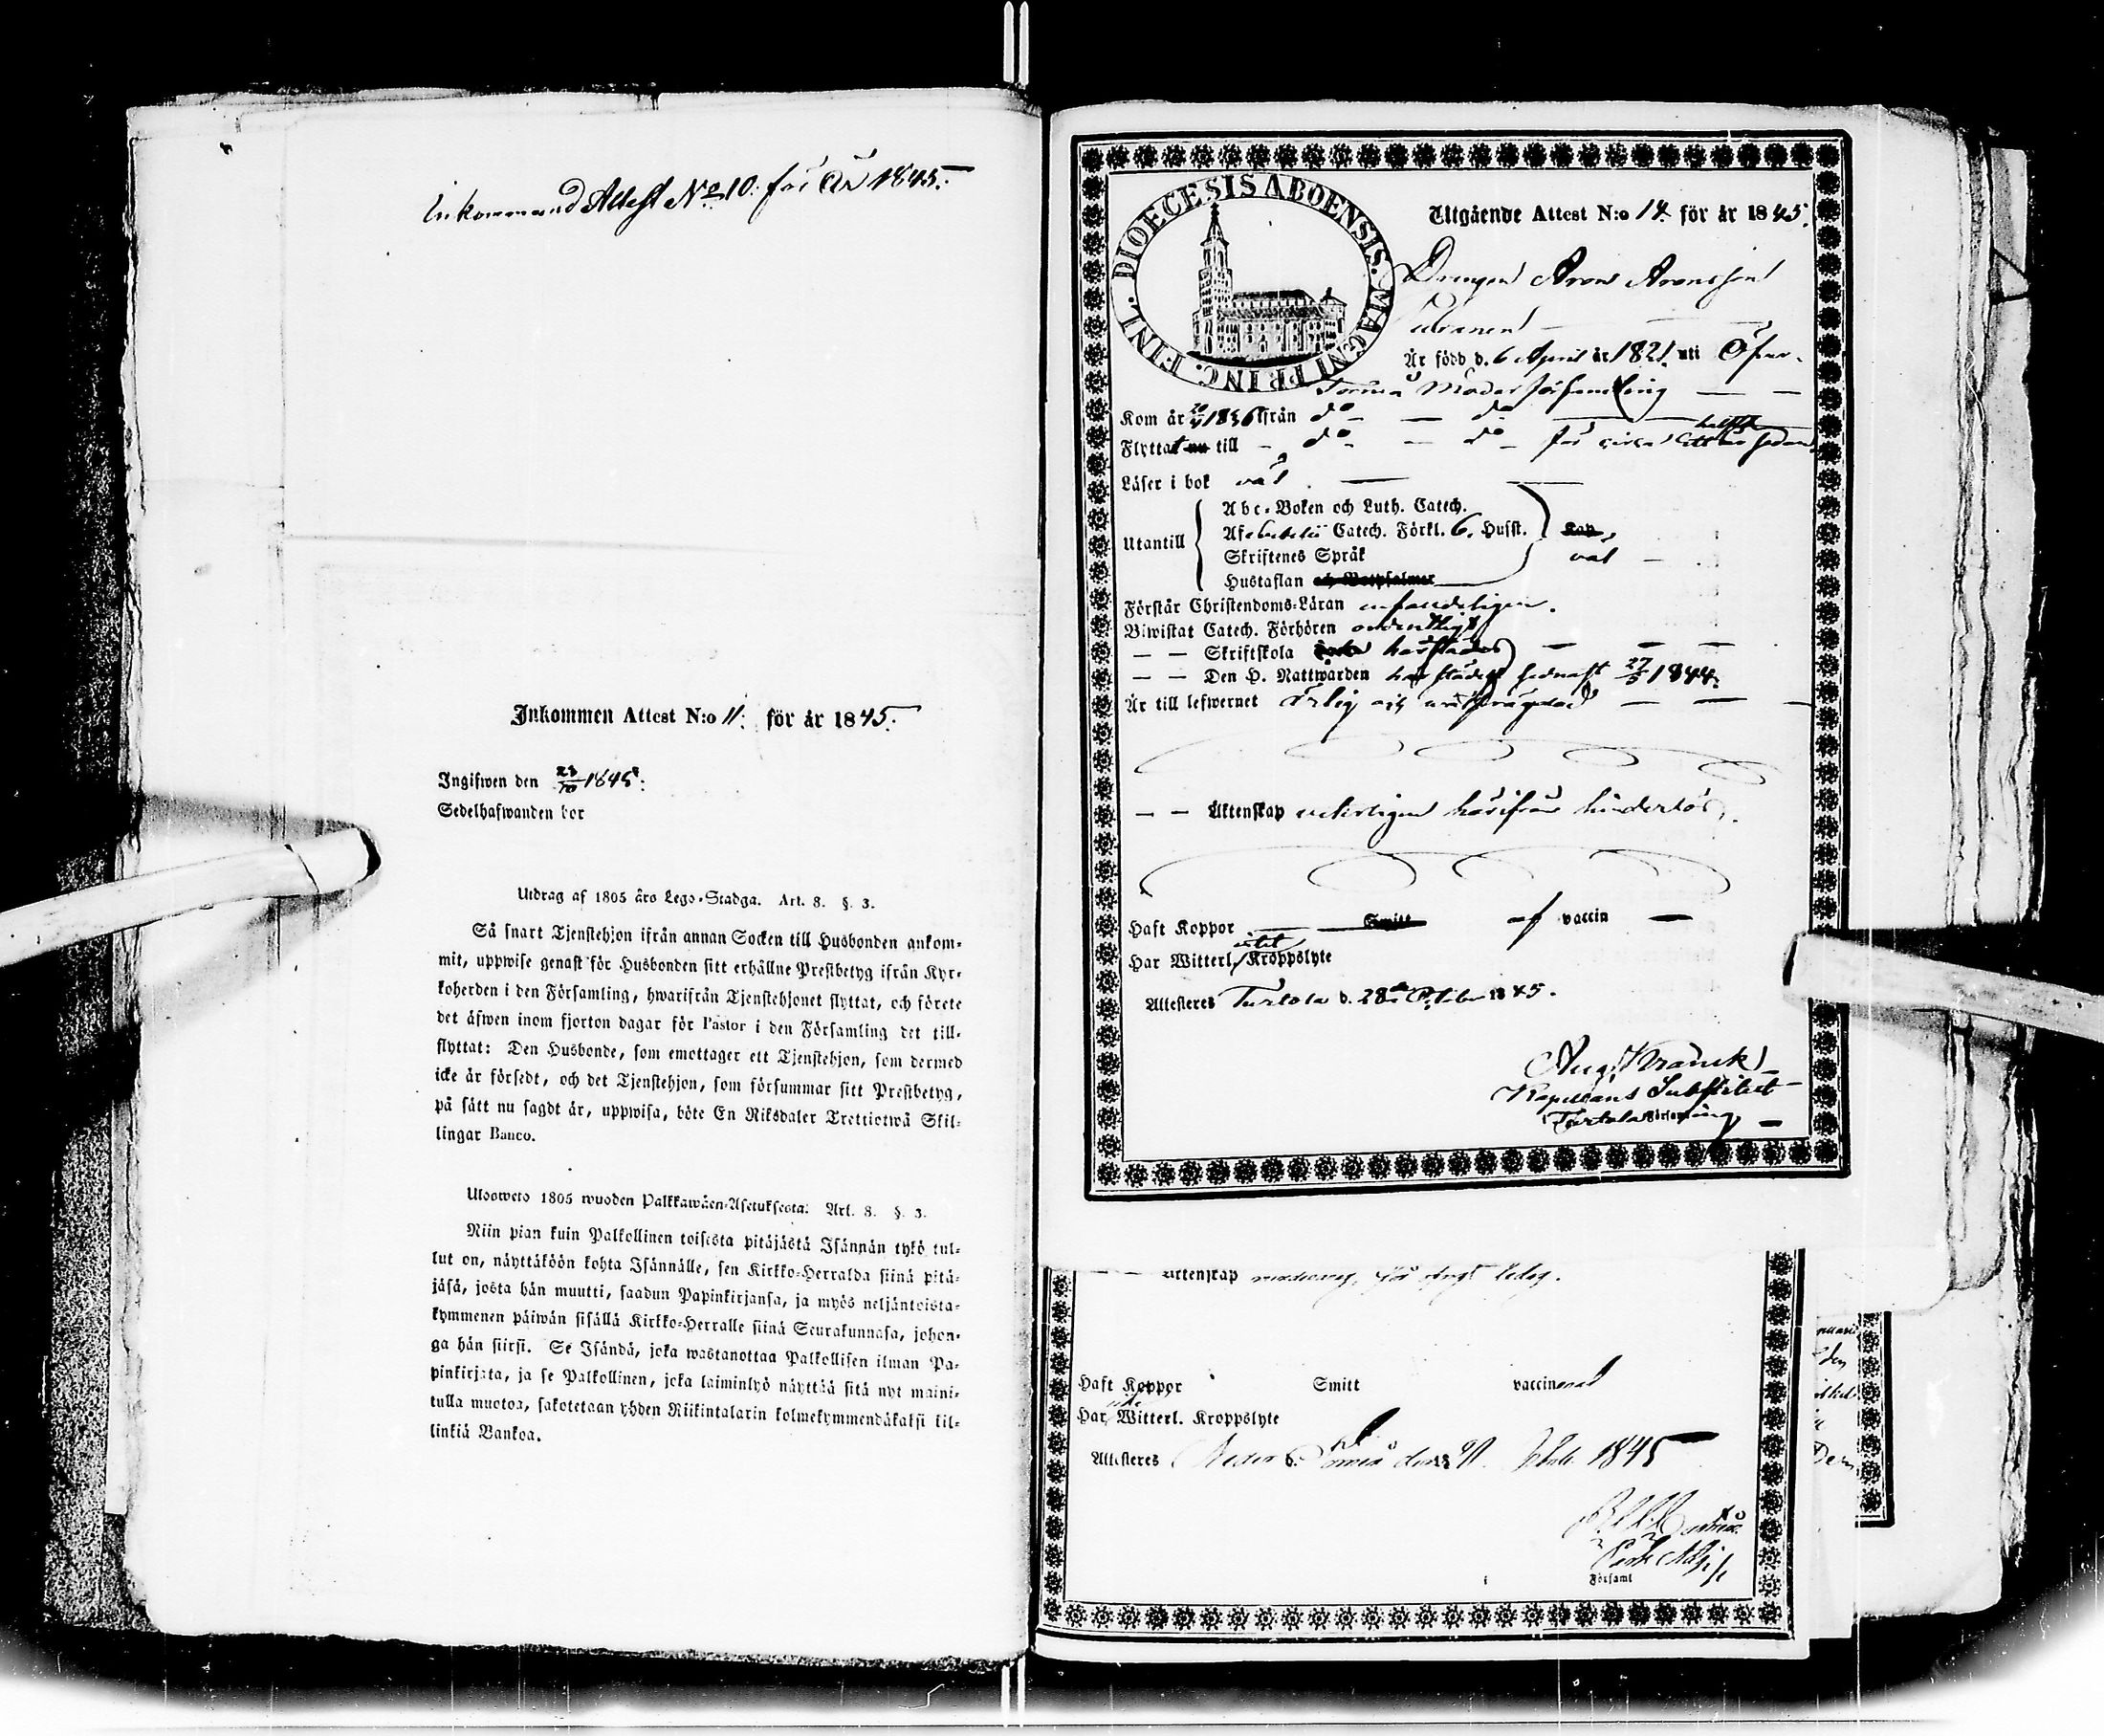 Inkommand Attest No 10. för År 1845.
Inkommen Attest N:o 11. för år 1845.
Ingifwen den 23/10 1845.
Sedelhafwanden bor
Utdrag af 1805 års Lego-Stadga. Art. 8. §. 3.
Så snart Tjenstehjon ifrån annan Socken till Husbonden ankom-
mit, uppwise genast för Husbonden sitt erhållne Prestbetyg ifrån Kyr-
koherden i den Församling, hwarifrån Tjenstehjonet flyttat, och förete
det äfwen inom fjorton dagar för Pastor i den Församling det till-
flyttat: Den Husbonde, som emottager ett Tjenstehjon, som dermed
icke är försedt, och det Tjenstehjon, som försummar sitt Prestbetyg,
på sätt nu sagdt är, uppwisa, böte En Riksdaler Trettiotwå Skil-
lingar Banco.
Ulosweto 1805 wuoden Palkkawäen-Asetuksesta. Art. 8. §. 3.
Niin pian kuin Palkollinen toisesta pitäjästä Isännän tykö tul-
lut on, näyttäköön kohta Isännälle, sen Kirkko-Herralda siinä pitä-
jäsä, josta hän muutti, saadun Papinkirjansa, ja myös neljäntoista-
kymmenen päiwän sisällä Kirkko-Herralle siinä Seurakunnasa, johon-
ga hän siirsi. Se Isändä, joka wastanottaa Palkollisen ilman Pa-
pinkirjata, ja se Palkollinen, joka laiminlyö näyttää sitä nyt maini-
tulla muotoa, sakotetaan yhden Riikintalarin kolmekymmendäkaksi kil-
linkiä Bankoa.
DIOECESIS ABOENSIS. MAGNI PRINC. FINL.
Utgående Attest N:o 14. för år 1845.
Drengen Aron Aronsson
Är född d. 6 April år 1821. uti Öfver-
Torneå Moderförsamling
Kom år 1836 ifrån do do
Flyttat nu till do do för circa sedan
Läser i bok väl
Utantill
Abc-Boken och Luth. Catech.
Catech. Förkl. 6. Husst.
Skriftenes Språk
väl
Hustaflan och Botpsalmer
Förstår Christendoms-Läran
Biwistat Catech. Förhören ordentligt
— — Skriftskola härstädes
— — Den H. Nattwarden härstädes sednast 27/5 1844.
Är till lefwernet ärlig och
— — Äktenskap härifrån hinderlös.
Haft Koppor Smitt af vaccin
Har Witterl. intet Kroppslyte
Attesteres Turtola d. 28de October 1845.
Aug. Franck
Kapellans Substitut
Turtola Församling
— — Äktenskap ledig.
Haft Koppor Smitt vaccinerad
Har Witterl. Kroppslyte
Attesteres Neder Torneå den 1845
Församl